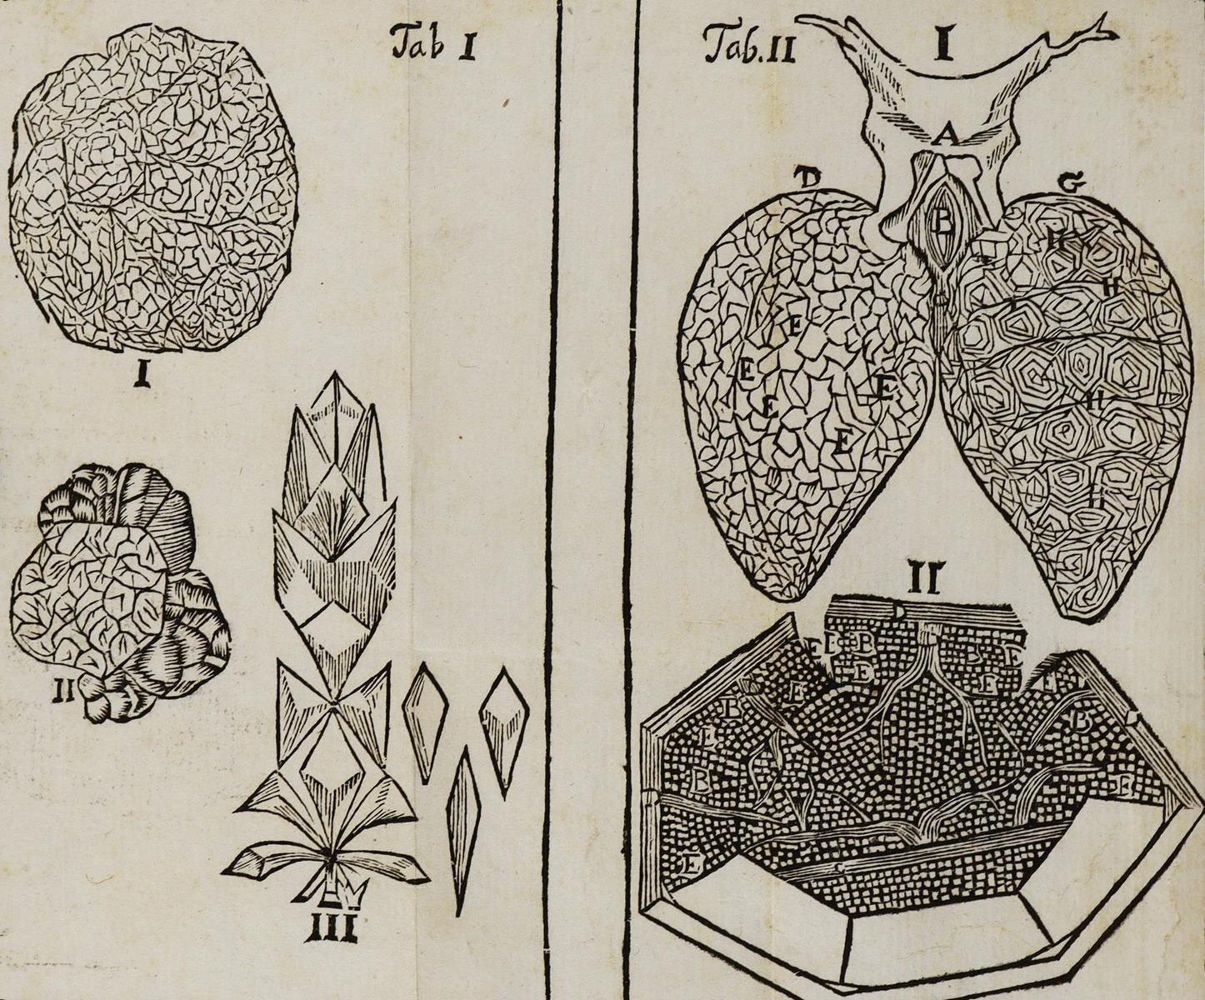 Tab I
I
II
III
Tab. II
I
A
D
G
B
H
H
I
H
E
E
E
E
E
H
H
II
D
E
B
E
D
E
E
E
A
B
B
E
B
E
E
C